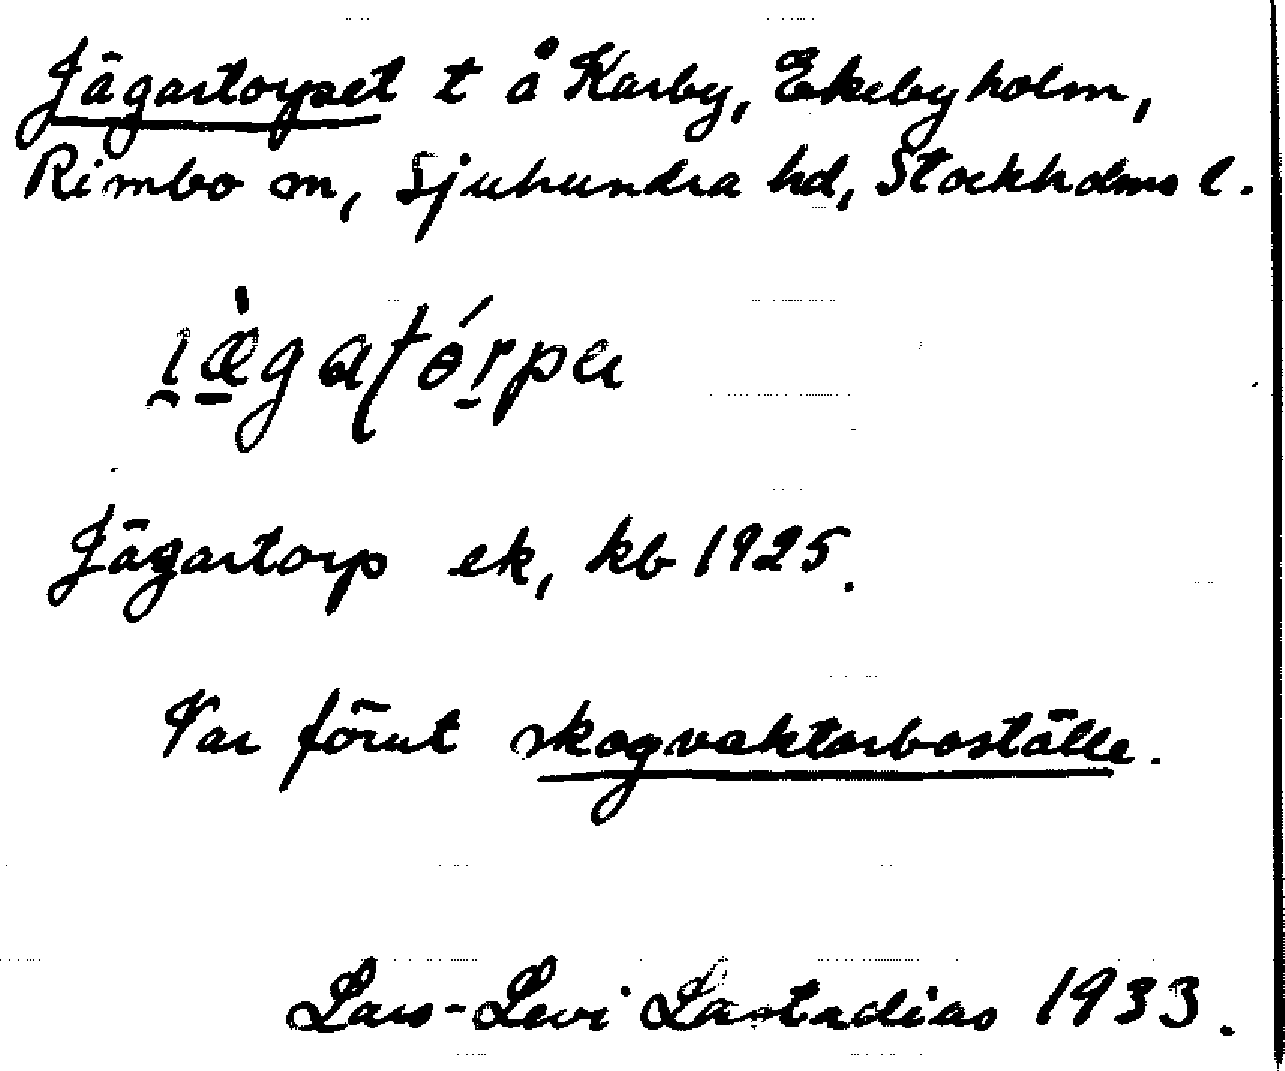 Jägartorpet t å Karby, Ekebyholm,
Rimbo sn, Sjuhundra hd, Stockholms l.
Jägartorp ek, kb 1925.
Var förut skogvaktarboställe.
Lars-Levi Læstadius 1933.